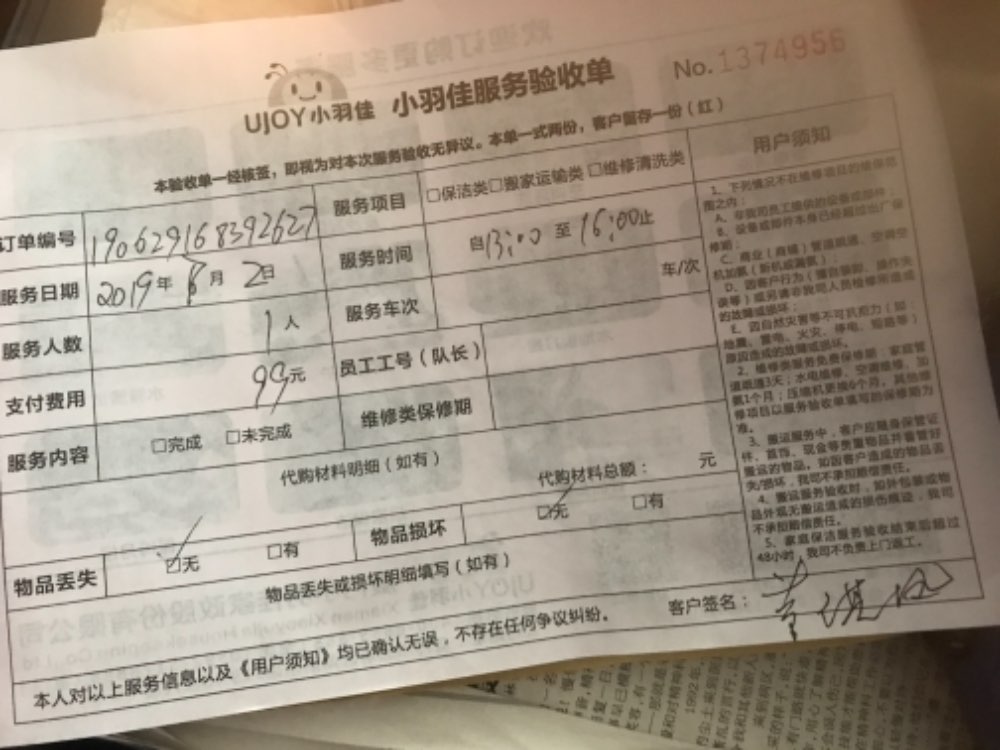 No.1374956
UJOY小羽佳 小羽佳服务验收单
本验收单一经核签，即视为对本次服务验收无异议。本单一式两份，客户留存一份（红）
订单编号 190629168392627 服务项目 □保洁类□搬家运输类□维修清洗类
服务日期 2019年8月2日 服务时间 自13:00至16:00止
服务人数 1人 服务车次 车/次
支付费用 99元 员工工号（队长）
服务内容 □完成 □未完成 维修类保修期
代购材料明细（如有）
代购材料总额： 元
物品丢失 ☑无 □有 物品损坏 ☑无 □有
物品丢失或损坏明细填写（如有）
本人对以上服务信息以及《用户须知》均已确认无误，不存在任何争议纠纷。
客户签名：
用户须知
1、下列情况不在维修项目的维保范
围之内：
A、非我司员工提供的设备或部件；
B、设备或部件本身已经超过出厂保
修期；
C、商业（商铺）管道疏通、空调空
机加氟（新机或漏氟）；
D、因客户行为（擅自装卸、操作失
误等）或另请非我司人员检修所造成
的故障或损坏；
E、因自然灾害等不可抗力（如：
地震、雷电、火灾、停电、短路等）
原因造成的故障或损坏。
2、维修类服务免费保修期：家庭管
道疏通3天；水电维修、空调维修、加
氟1个月；压缩机更换6个月，其他维
修项目以服务验收单填写的保修期为
准。
3、搬运服务中，客户应随身保管证
件、首饰、现金等贵重物品并看管好
搬运的物品，如因客户造成的物品丢
失/损坏，我司不承担赔偿责任。
4、搬运服务验收时，如外包装或物
品外观无搬运造成的损伤痕迹，我司
不承担赔偿责任。
5、家庭保洁服务验收结束后超过
48小时，我司不负责上门返工。